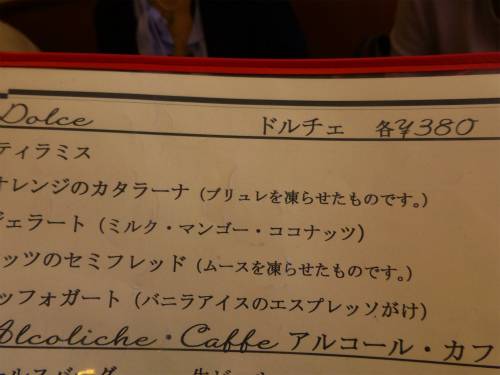 Dolce ドルチェ 各¥380
ティラミス
オレンジのカタラーナ（ブリュレを凍らせたものです。）
ジェラート（ミルク・マンゴー・ココナッツ）
ッツのセミフレッド（ムースを凍らせたものです。）
ッフォガート（バニラアイスのエスプレッソがけ）
Alcoliche・Caffe アルコール・カフ